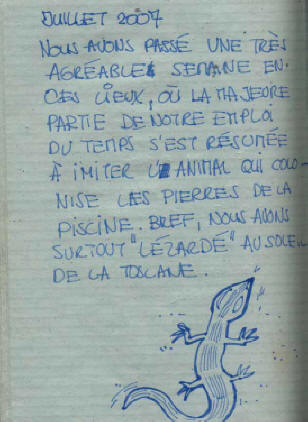 JUILLET 2007
NOUS AVONS PASSÉ UNE TRÈS
AGRÉABLE SEMAINE EN
CES LIEUX, OÙ LA MAJEURE
PARTIE DE NOTRE EMPLOI
DU TEMPS S'EST RÉSUMÉE
À IMITER L'ANIMAL QUI COLO-
NISE LES PIERRES DE LA
PISCINE. BREF, NOUS AVONS
SURTOUT "LÉZARDÉ" AU SOLEIL
DE LA TOSCANE.